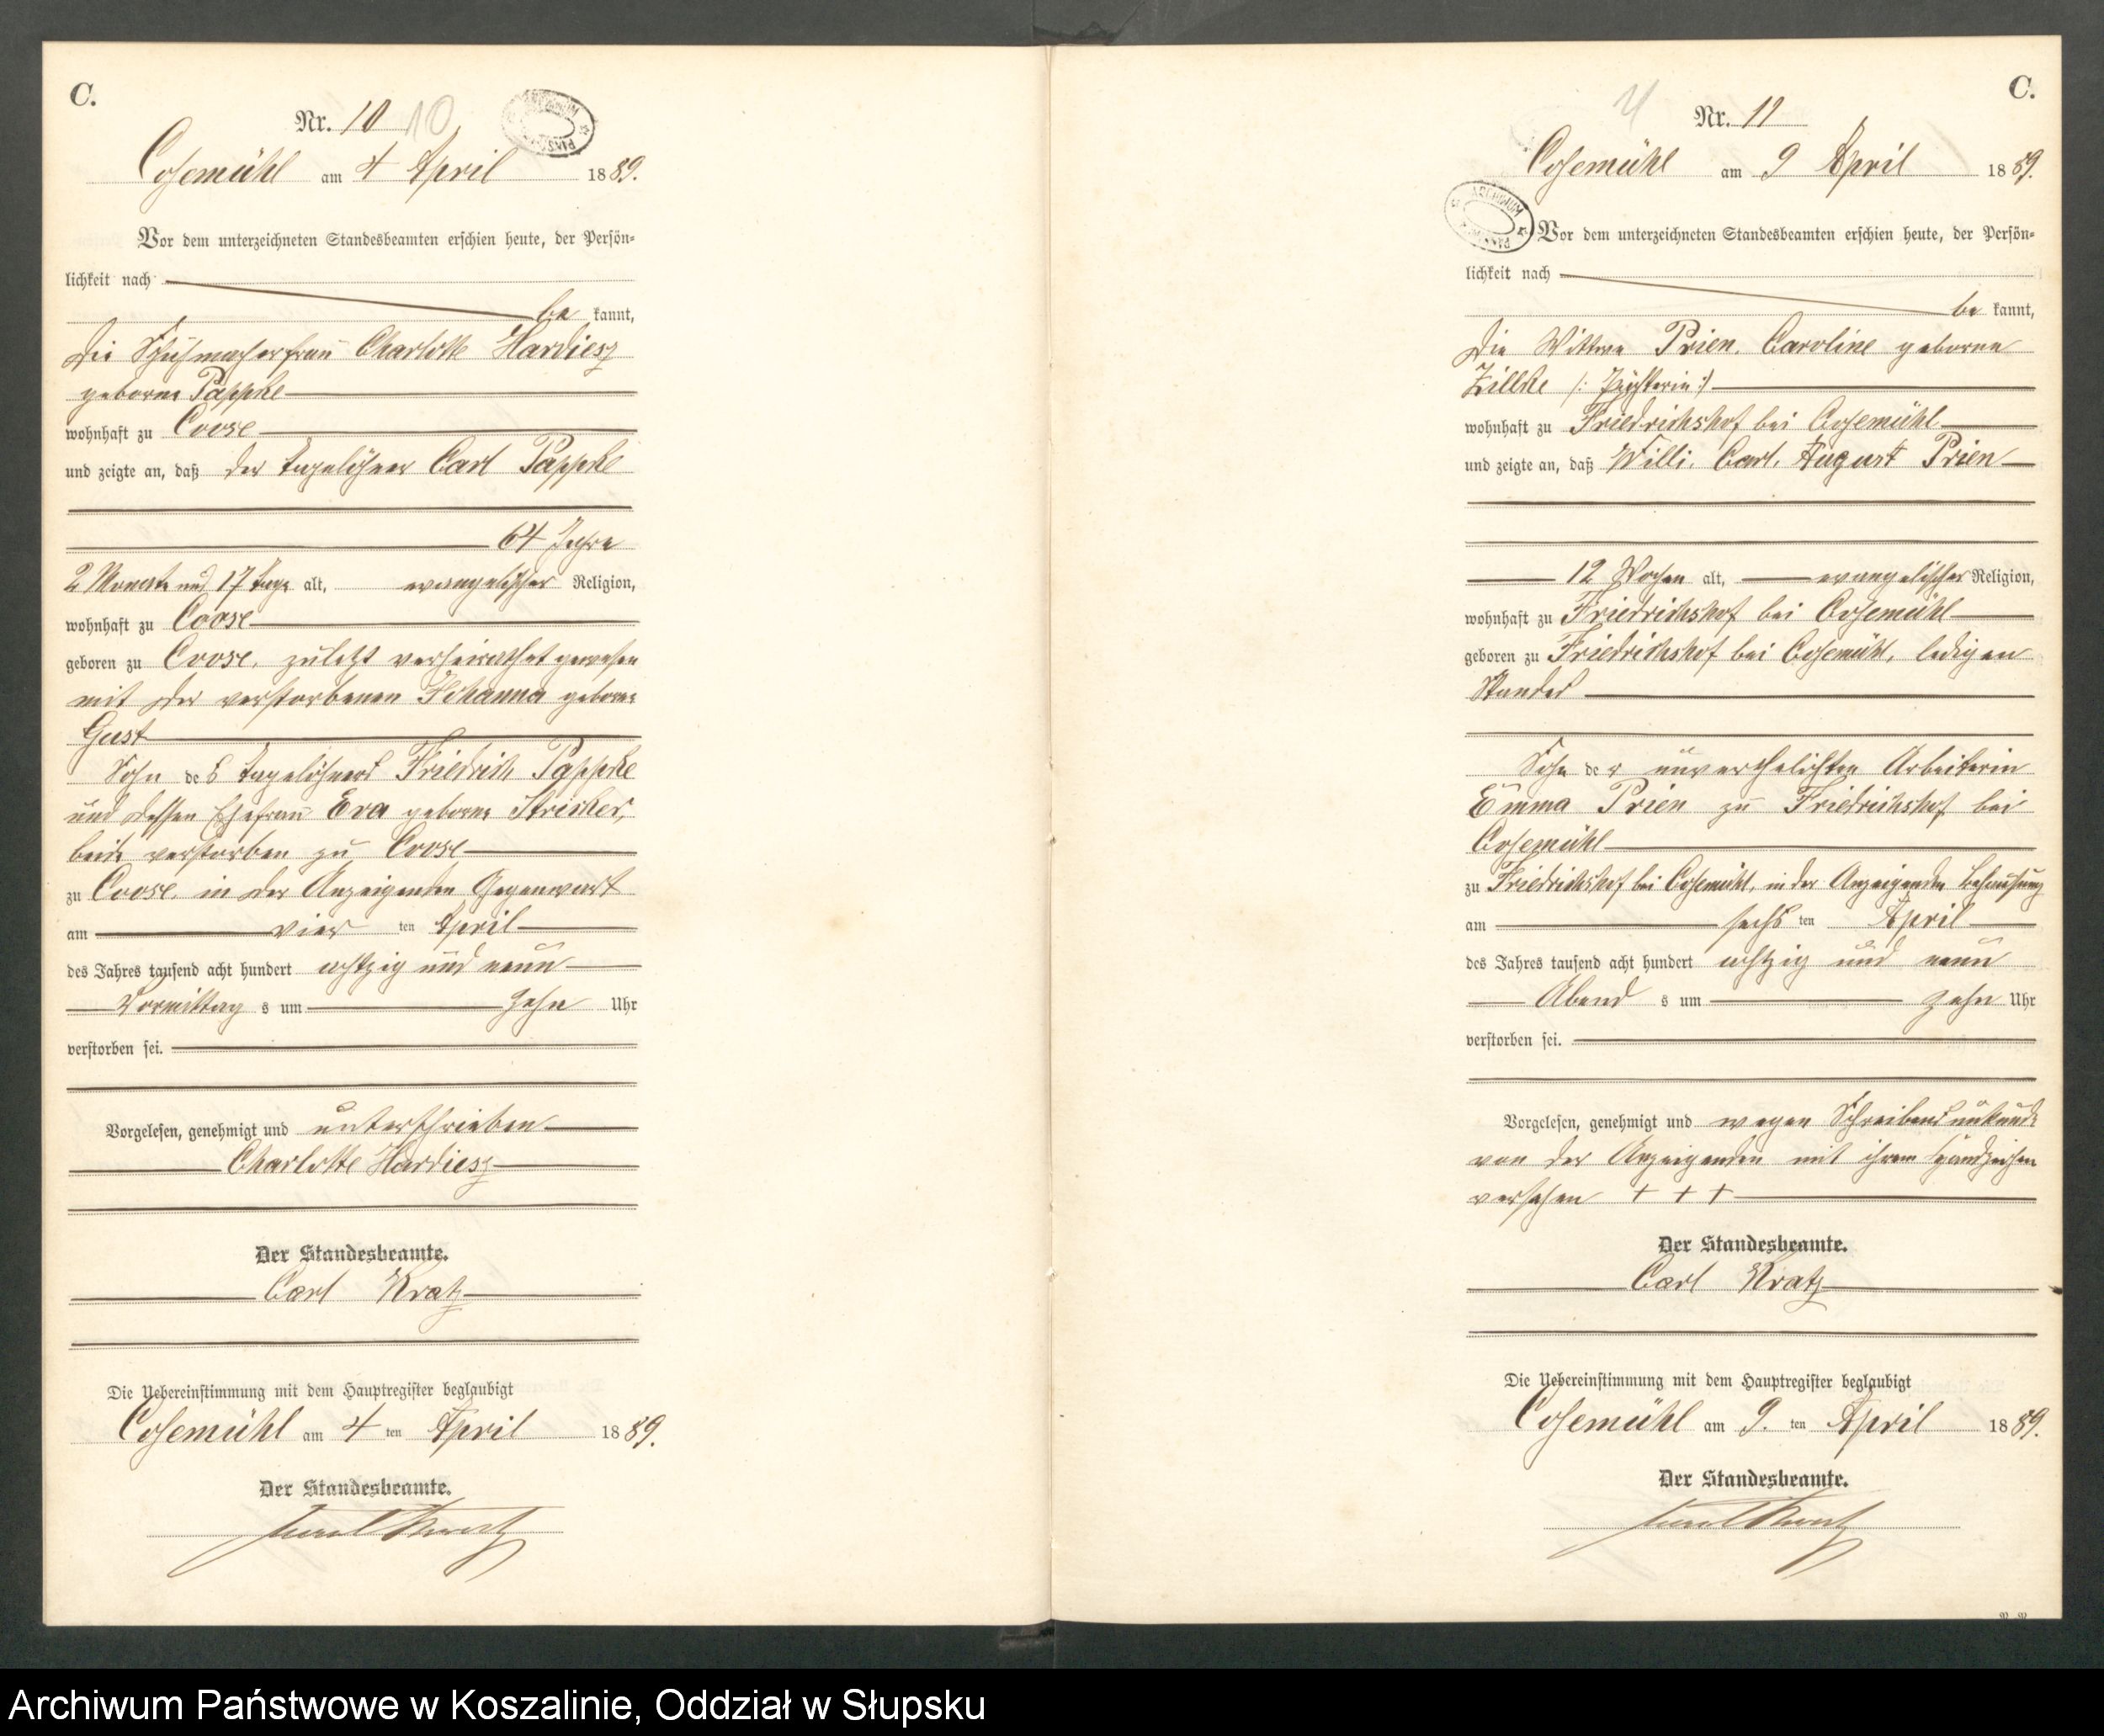 C.
Nr. 10 10
Cosemühl am 4 April 1889.
Vor dem unterzeichneten Standesbeamten erschien heute, der Persön-
lichkeit nach
be kannt,
die Schuhmacherfrau Charlotte Hardiess
geborne Pappke
wohnhaft zu Coose
und zeigte an, daß der Tagelöhner Carl Pappke
64 Jahre
2 Monate und 17 Tage alt, evangelischer Religion,
wohnhaft zu Coose
geboren zu Coose, zuletzt verheirathet gewesen
mit der verstorbenen Johanna geborne
Gust
Sohn des Tagelöhners Friedrich Pappke
und dessen Ehefrau Eva geborne Stricker,
beide verstorben zu Coose
zu Coose, in der Anzeigenden Gegenwart
am vier ten April
des Jahres tausend acht hundert achtzig und neun
Vormittag s um zehn Uhr
verstorben sei.
Vorgelesen, genehmigt und unterschrieben
Charlotte Hardiess
Der Standesbeamte.
Carl Kratz
Die Uebereinstimmung mit dem Hauptregister beglaubigt
Cosemühl am 4 ten April 1889.
Der Standesbeamte.
Carl Kratz
C.
Nr. 11
Cosemühl am 9 April 1889.
ARCHIWUM
Vor dem unterzeichneten Standesbeamten erschien heute, der Persön-
lichkeit nach
be kannt,
die Wittwe Prien, Caroline geborne
Zillke
wohnhaft zu Friedrichshof bei Cosemühl
und zeigte an, daß Willi, Carl, August Prien
12 Wochen alt, evangelischer Religion,
wohnhaft zu Friedrichshof bei Cosemühl
geboren zu Friedrichshof bei Cosemühl, ledigen
Standes
Sohn der unverehelichten Arbeiterin
Emma Prien zu Friedrichshof bei
Cosemühl
zu Friedrichshof bei Cosemühl, in der Anzeigenden Behausung
am sechs ten April
des Jahres tausend acht hundert achtzig und neun
Abend s um zehn Uhr
verstorben sei.
Vorgelesen, genehmigt und wegen Schreibensunkunde
von der Anzeigenden mit ihrem Handzeichen
versehen + + +
Der Standesbeamte.
Carl Kratz
Die Uebereinstimmung mit dem Hauptregister beglaubigt
Cosemühl am 9. ten April 1889.
Der Standesbeamte.
Carl Kratz
Archiwum Państwowe w Koszalinie, Oddział w Słupsku